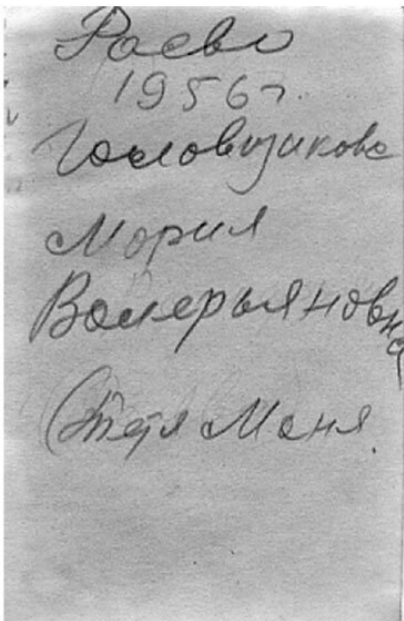 Раево
1956 г.
Головщикова
Мария
Валерьяновна
(тётя Маня.